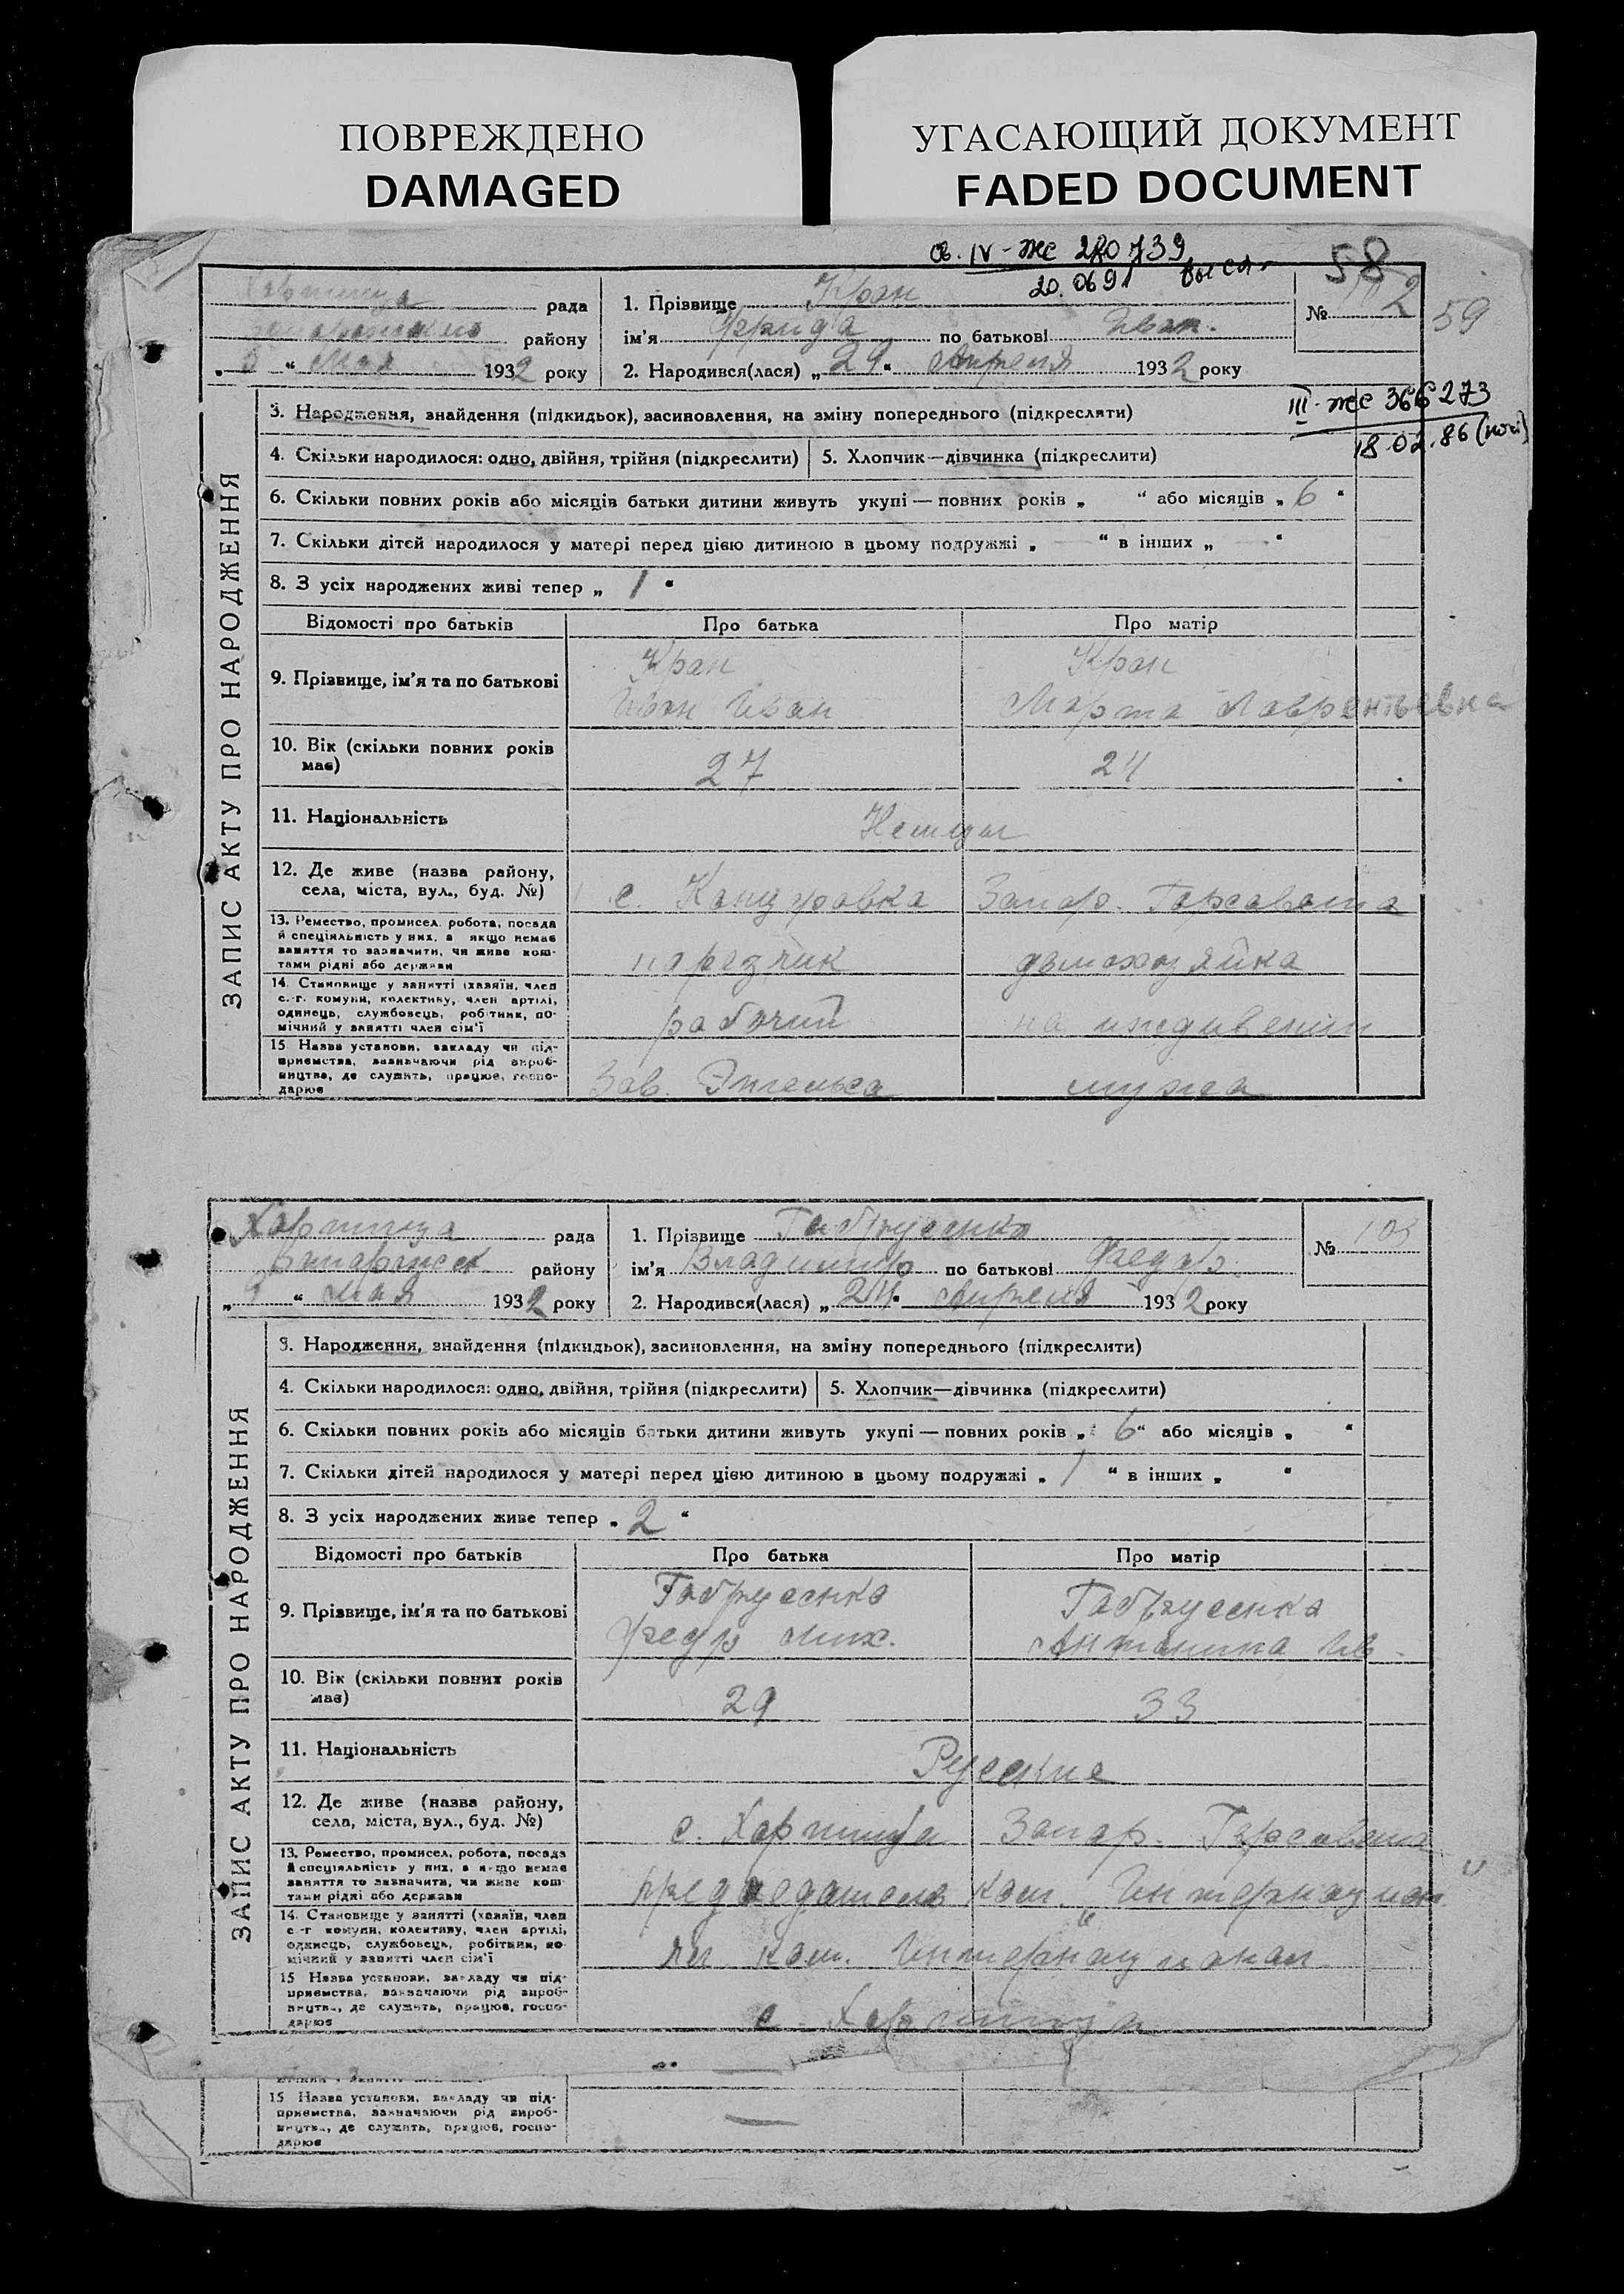 ПОВРЕЖДЕНО
DAMAGED
УГАСАЮЩИЙ ДОКУМЕНТ
FADED DOCUMENT
св. IV-ЖС 280739
20.0691
58
59
рада
району
" Мая 1932 року
1. Прізвище Кран
ім'я Фрида по батькові Иван.
2. Народився(лася) „ 29 " Апреля 1932 року
№ 2
III-ЖС 366273
18.02.86
ЗАПИС АКТУ ПРО НАРОДЖЕННЯ
3. Народження, знайдення (підкидьок), засиновлення, на зміну попереднього (підкреслити)
4. Скільки народилося: одно, двійня, трійня (підкреслити)
5. Хлопчик—дівчинка (підкреслити)
6. Скільки повних років або місяців батьки дитини живуть укупі — повних років „ " або місяців „ 6 "
7. Скільки дітей народилося у матері перед цією дитиною в цьому подружжі „ — " в інших „ — "
8. З усіх народжених живі тепер „ 1 "
Відомості про батьків
Про батька
Про матір
9. Прізвище, ім'я та по батькові
Кран
Иван Иван
Кран
Марта Лаврентьевна
10. Вік (скільки повних років має)
27
24
11. Національність
Немцы
12. Де живе (назва району, села, міста, вул., буд. №)
с. Канцеровка Запор. Горсовета
13. Ремество, промисел, робота, посада й спеціяльність у них, а якщо немає заняття то зазначити, чи живе коштами рідні або держави
нарезчик
домохозяйка
14. Становище у занятті (хазяїн, член с.-г. комуни, колективу, член артілі, одинець, службовець, робітник, помічний у занятті член сім'ї
рабочий
на иждивении
15 Назва установи, закладу чи підприємства, зазначаючи рід виробництва, де служить, працює, господарює
Зав. Энгельса
мужа
Хортица рада
Запорожск району
„ " Мая 1932 року
1. Прізвище Габрусенко
ім'я Владимир по батькові Федор.
2. Народився(лася) „ 24 " Апреля 1932 року
№ 103
ЗАПИС АКТУ ПРО НАРОДЖЕННЯ
3. Народження, знайдення (підкидьок), засиновлення, на зміну попереднього (підкреслити)
4. Скільки народилося: одно, двійня, трійня (підкреслити)
5. Хлопчик—дівчинка (підкреслити)
6. Скільки повних років або місяців батьки дитини живуть укупі — повних років „ 6 " або місяців „ "
7. Скільки дітей народилося у матері перед цією дитиною в цьому подружжі „ 1 " в інших „ "
8. З усіх народжених живе тепер „ 2 "
Відомості про батьків
Про батька
Про матір
9. Прізвище, ім'я та по батькові
Габрусенко
Федр Мих.
Габрусенко
Антонина Ив.
10. Вік (скільки повних років має)
29
33
11. Національність
Русские
12. Де живе (назва району, села, міста, вул., буд. №)
с. Хортица Запор. Горсовета
13. Ремество, промисел, робота, посада й спеціяльність у них, а якщо немає заняття то зазначити, чи живе коштами рідні або держави
председатель ком. Интернационал
14. Становище у занятті (хазяїн, член с.-г комуни, колективу, член артілі, одинець, службовець, робітник, помічний у занятті член сім'ї
чл. ком. Интернационал
15 Назва установи, закладу чи підприємства, зазначаючи рід виробництва, де служить, працює, господарює
с. Хортица
15 Назва установи, закладу чи підприємства, зазначаючи рід виробництва, де служить, працює, господарює